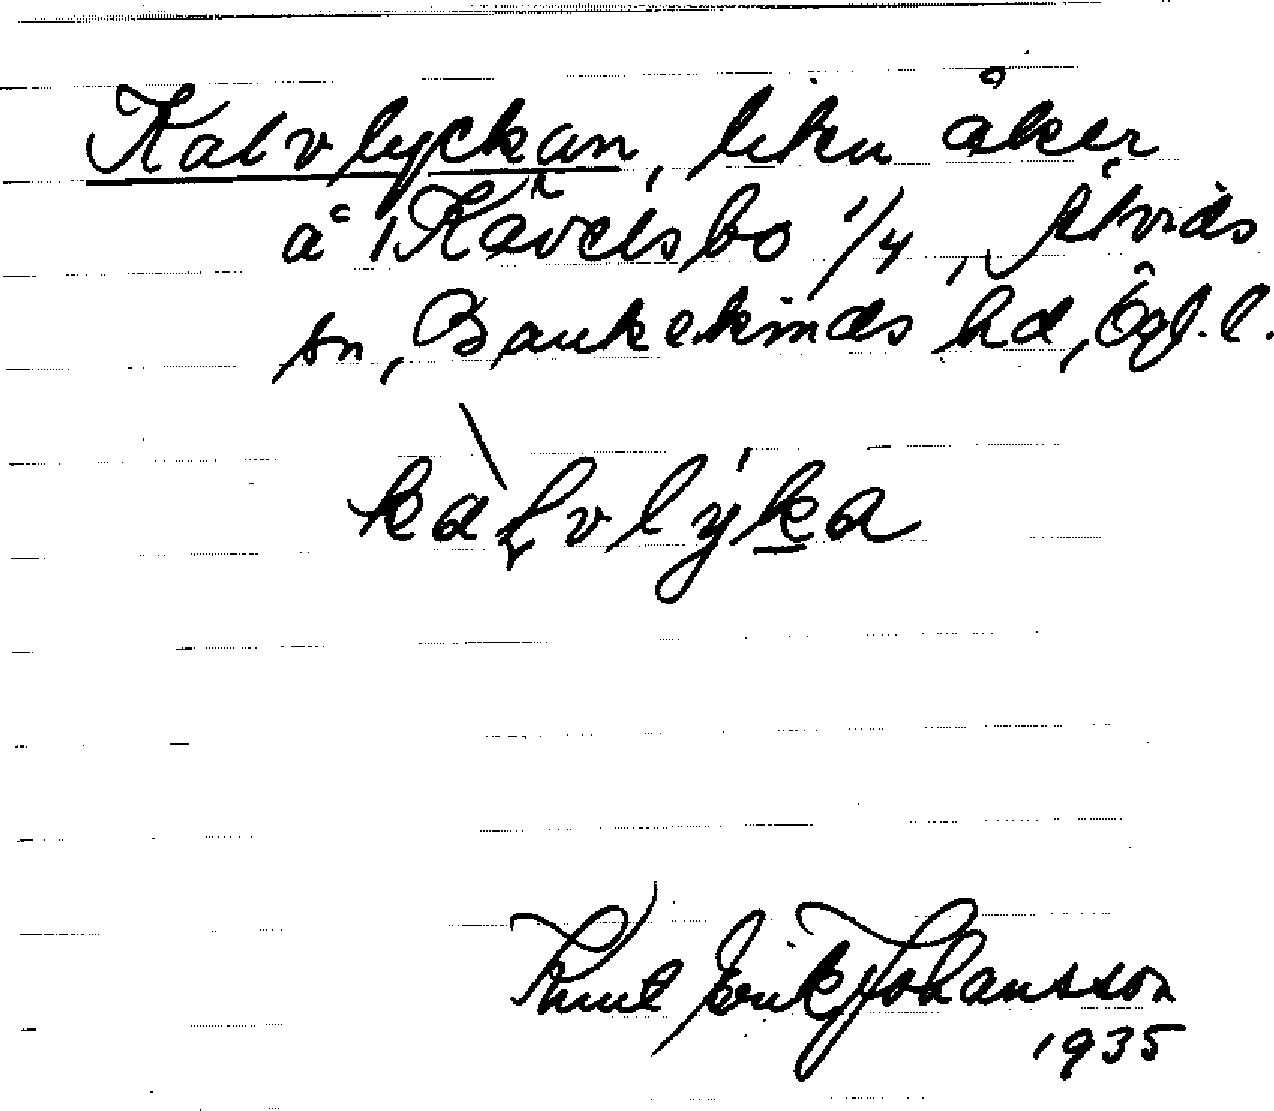 Kalvlyckan, liten åker
å Kävelsbo 1/4, Åtvids
sn, Bankekinds hd, Ögl. l.
kaɭvlýka
Knut Erik Johansson
1935